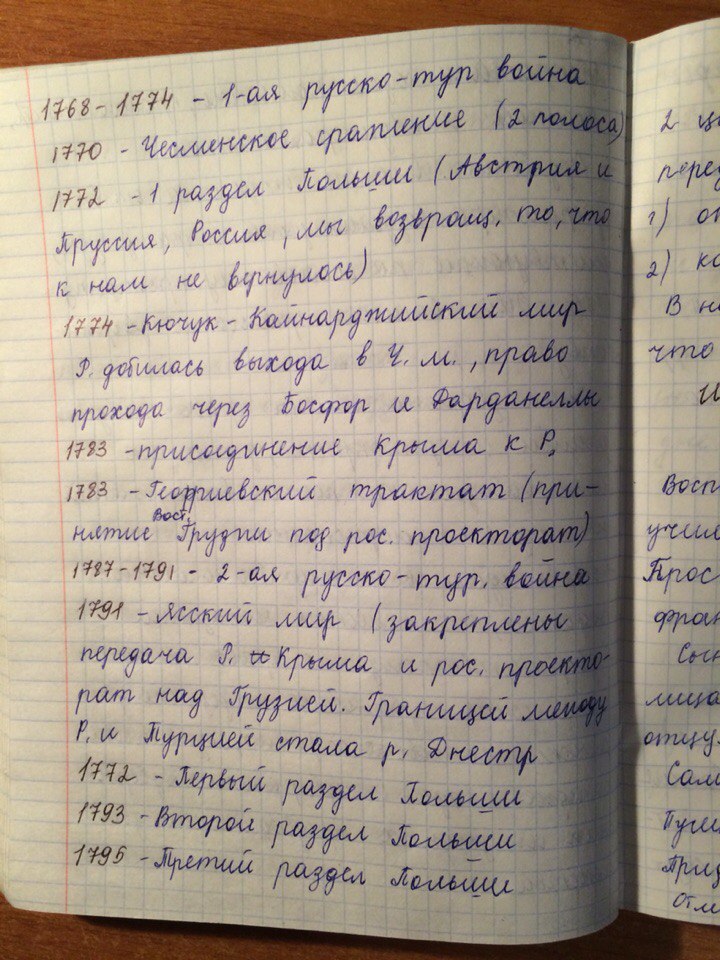 1768-1774 - 1-ая русско-тур война
1770 - Чесменское сратение (2 полоса)
1772 - 1 раздел Польши (Австрия и
Пруссия, Россия, мы возвращ. то, что
к нам не вернулось)
1774 - Кючук-Кайнарджийский мир
Р. добилась выхода в Ч.м., право
прохода через Босфор и Дарданеллы
1783 - присоединение Крыма к Р.
1783 - Георгиевский трактат (при-
нятие Вост. Грузии под рос. проекторат)
1787-1791 - 2-ая русско-тур. война
1791 - Ясский мир (закреплены
передача Р. Крыма и рос. проекто-
рат над Грузией. Границей между
Р. и Турцией стала р. Днестр
1772 - Первый раздел Польши
1793 - Второй раздел Польши
1795 - Третий раздел Польши
2
1)
2)
В
что